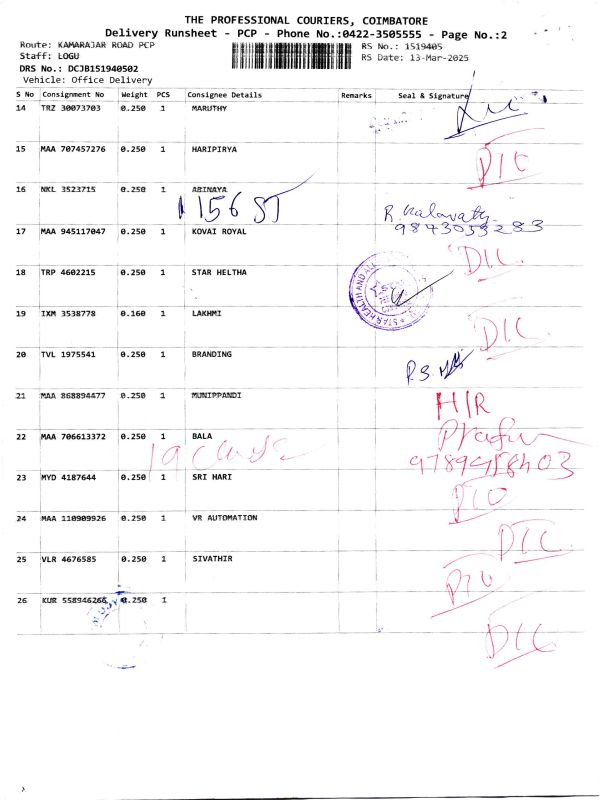 THE PROFESSIONAL COURIERS, COIMBATORE
Delivery Runsheet - PCP - Phone No.:0422-3505555 - Page No.:2
Route: KAMARAJAR ROAD PCP
RS No.: 1519405
Staff: LOGU
RS Date: 13-Mar-2025
DRS No.: DCJB151940502
Vehicle: Office Delivery
S No Consignment No Weight PCS Consignee Details Remarks Seal & Signature
14 TRZ 30073703 0.250 1 MARUTHY
15 MAA 707457276 0.250 1 HARIPIRYA
D/C
16 NKL 3523715 0.250 1 ABINAYA
156 ST
R. Kalavathy
9843055283
17 MAA 945117047 0.250 1 KOVAI ROYAL
D/C
18 TRP 4602215 0.250 1 STAR HELTHA
STAR HEALTH AND ALL
19 IXM 3538778 0.160 1 LAKHMI
D/C
20 TVL 1975541 0.250 1 BRANDING
P.S
21 MAA 868894477 0.250 1 MUNIPPANDI
H/R
22 MAA 706613372 0.250 1 BALA
9789458403
23 MYD 4187644 0.250 1 SRI HARI
D/C
24 MAA 110909926 0.250 1 VR AUTOMATION
D/C
25 VLR 4676585 0.250 1 SIVATHIR
D/C
26 KUR 558946266 0.250 1
D/C